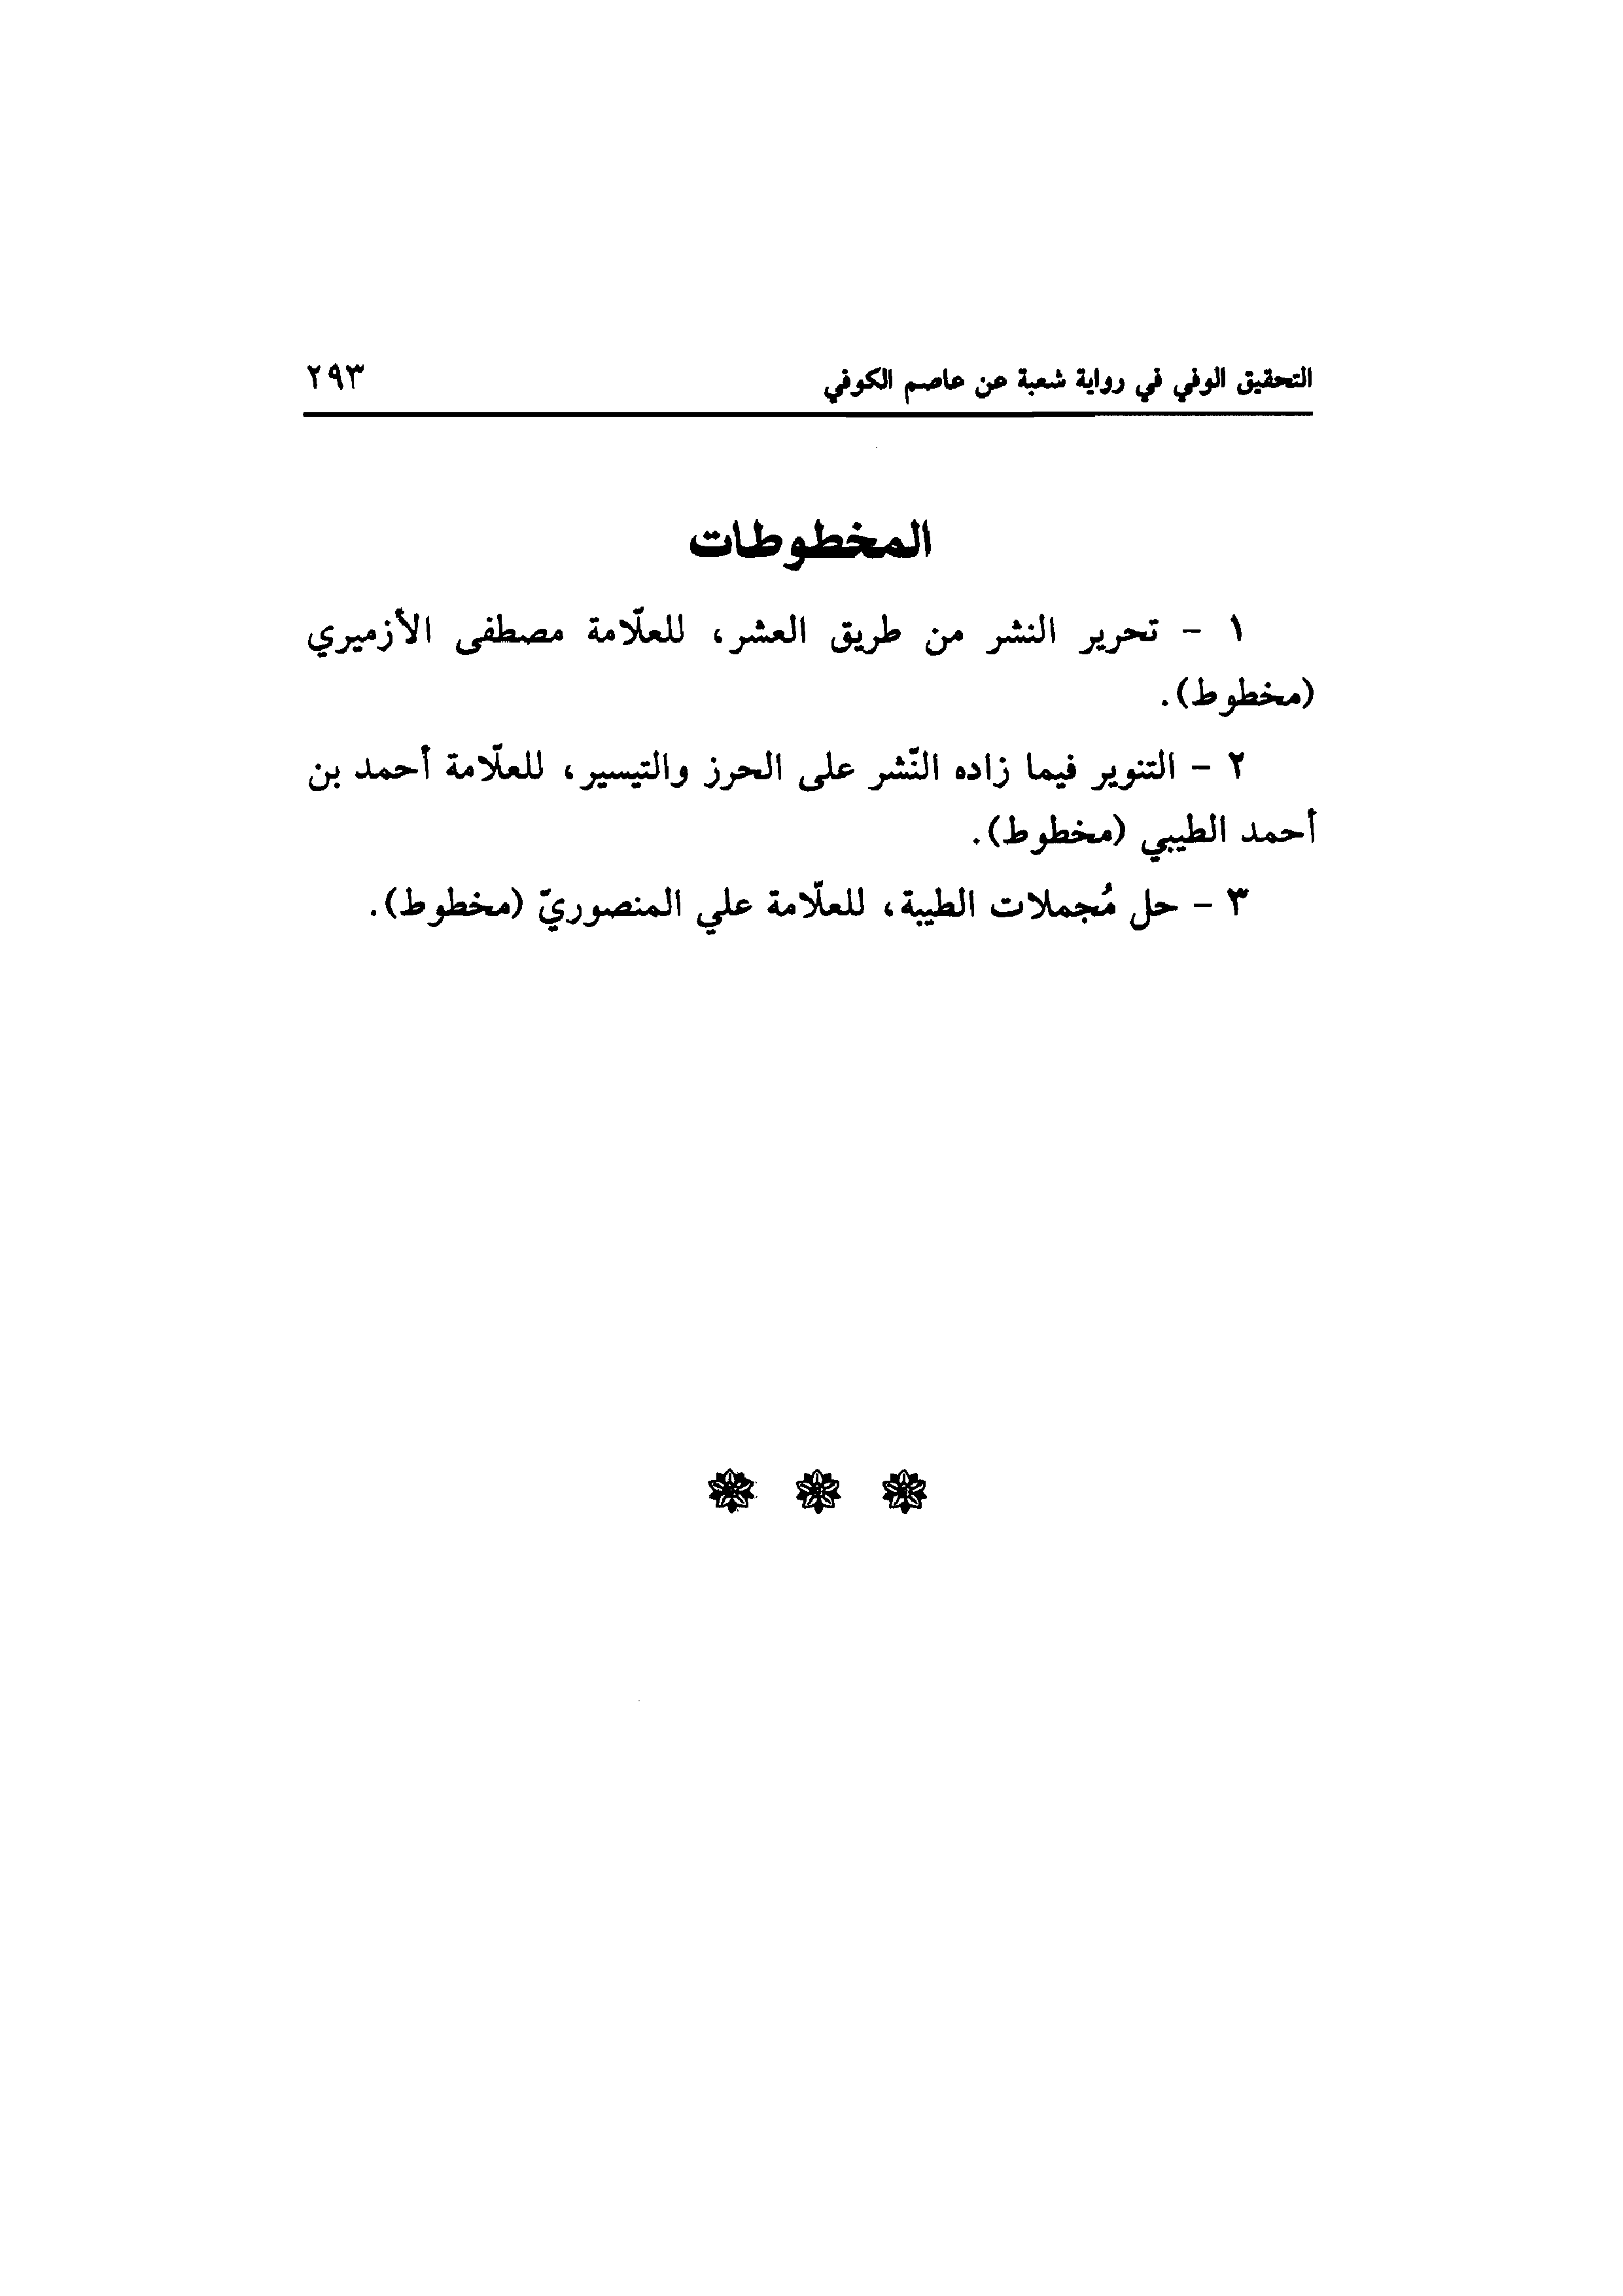 التحقيق الوفي في رواية شعبة عن عاصم الكوفي ٢٩٣
المخطوطات
١ - تحرير النشر من طريق العشر، للعلّامة مصطفى الأزميري
(مخطوط).
٢ - التنوير فيما زاده النّشر على الحرز والتيسير، للعلّامة أحمد بن
أحمد الطيبي (مخطوط).
٣ - حل مُجملات الطيبة، للعلّامة علي المنصوريّ (مخطوط).